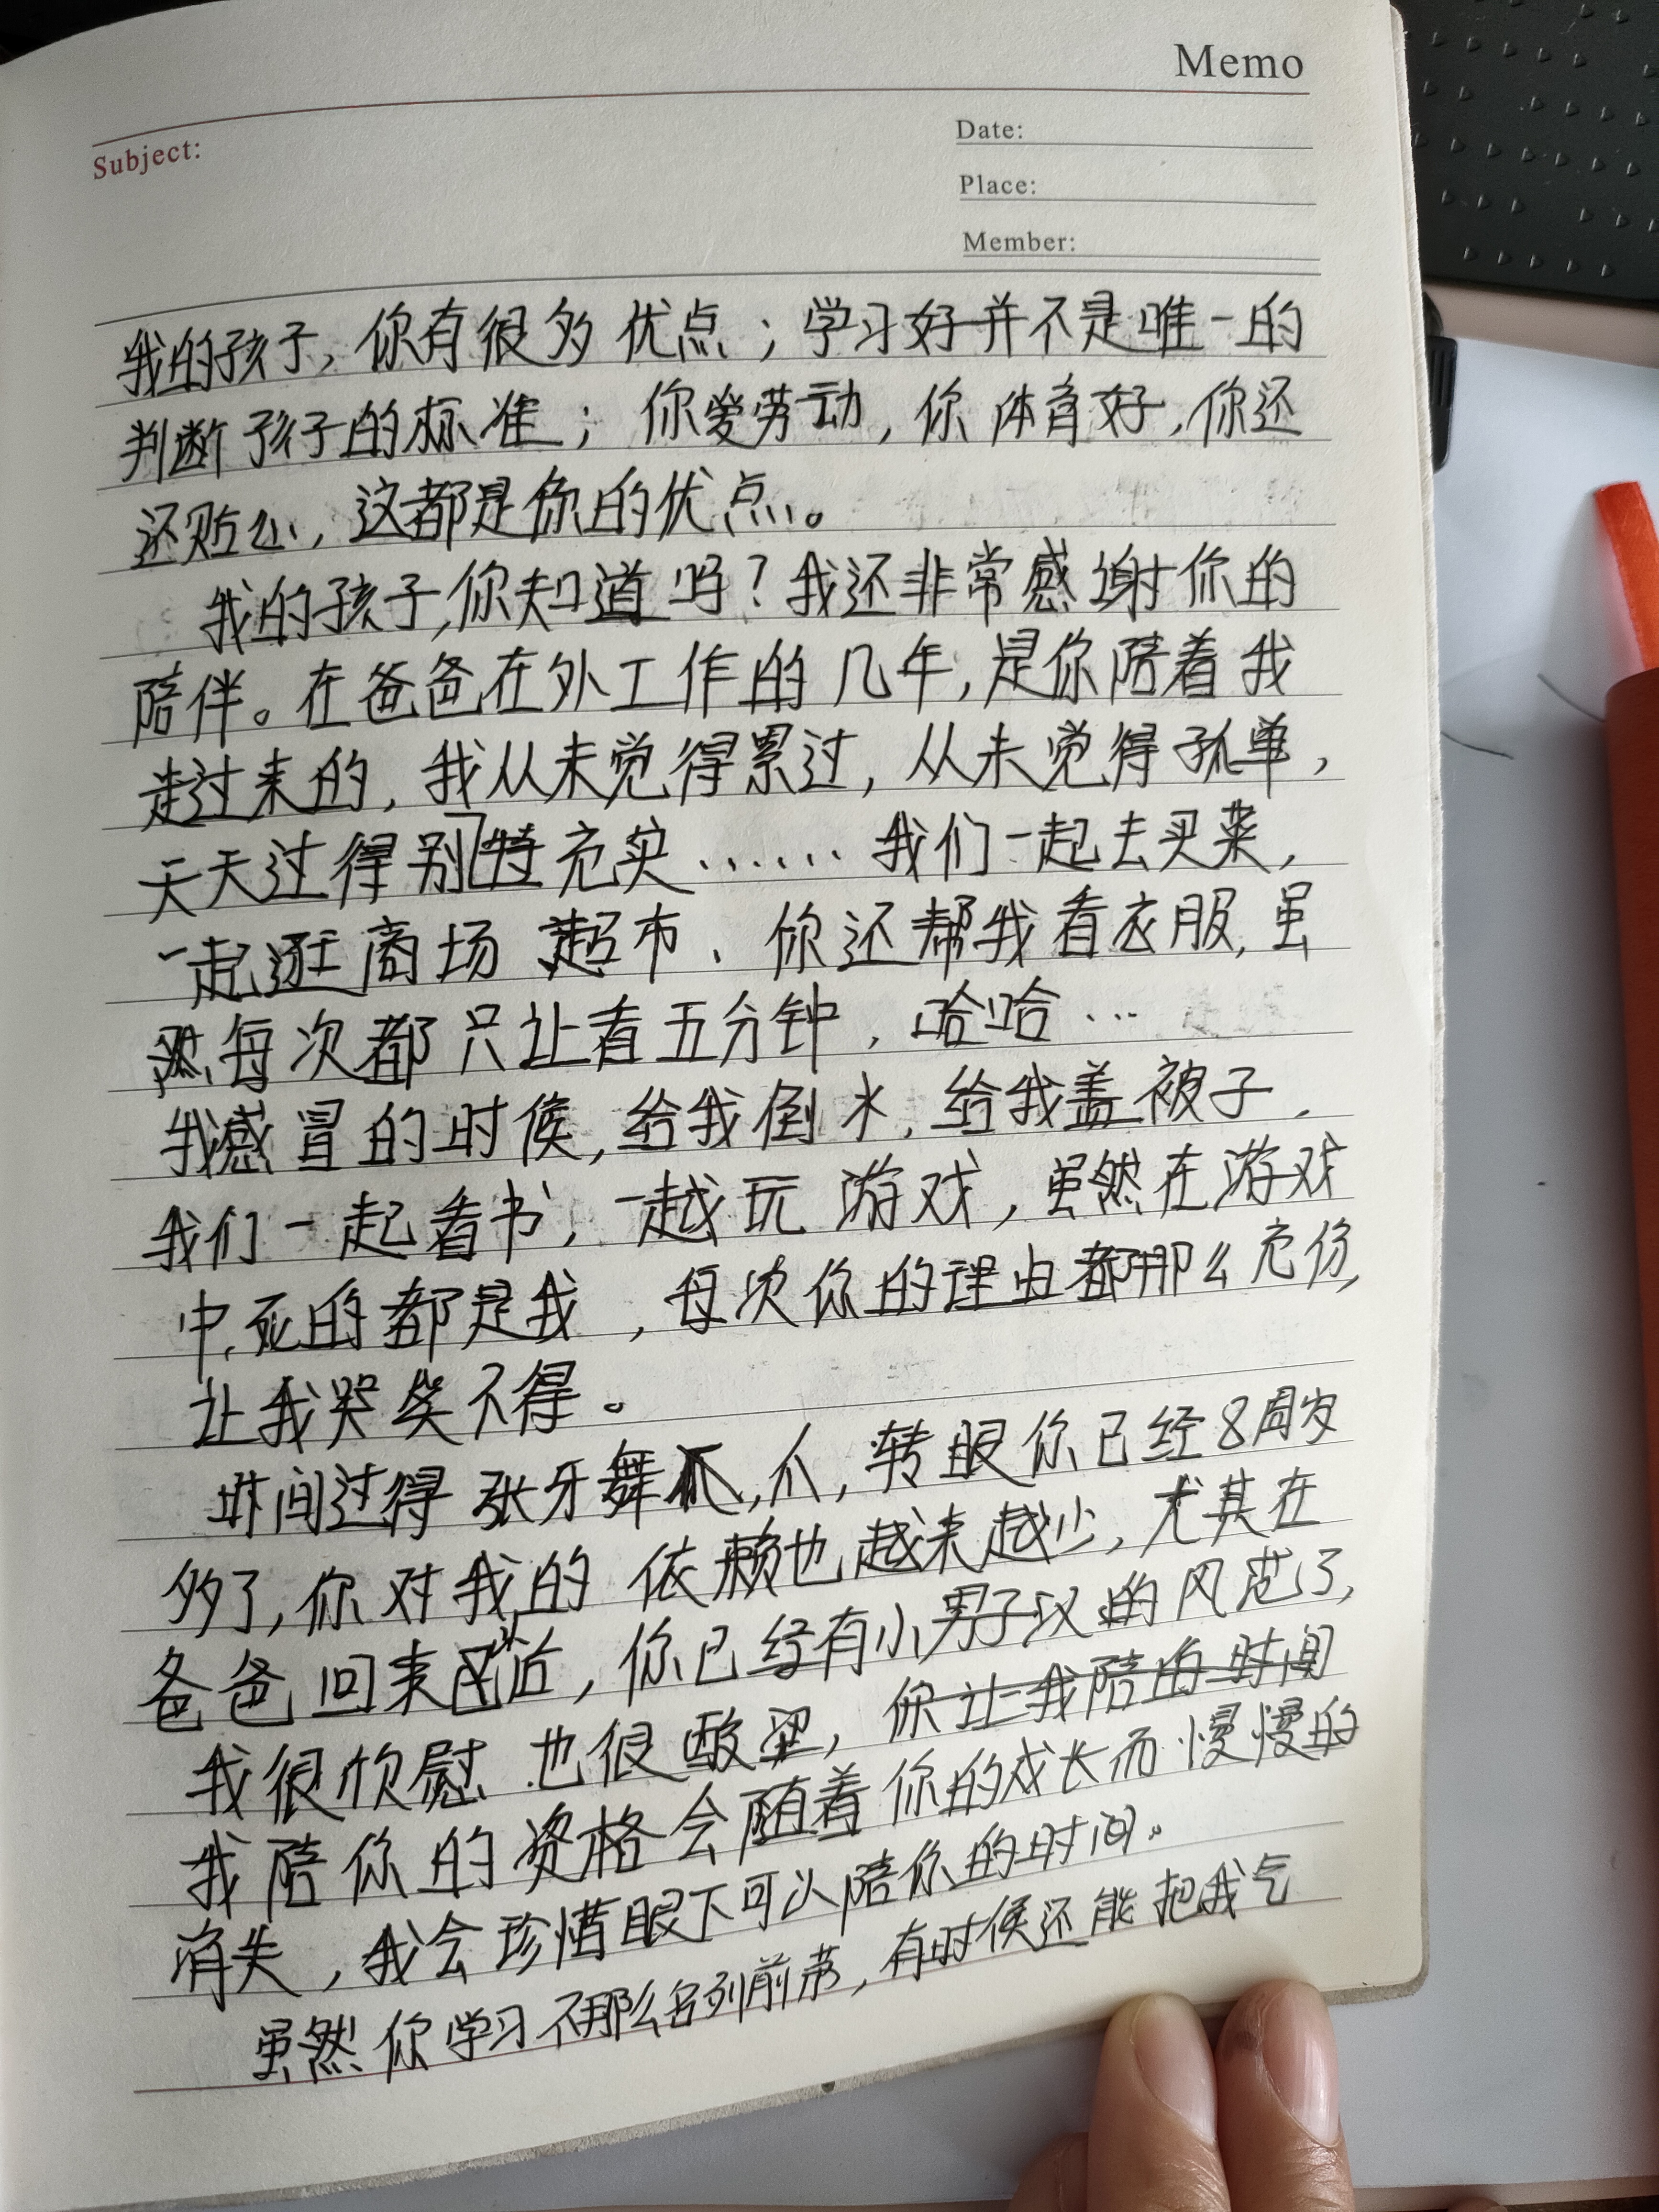 Memo
Subject:
Date:
Place:
Member:
我的孩子，你有很多优点；学习好并不是唯一的
判断孩子的标准；你爱劳动，你体育好，你还
还贴心，这都是你的优点。
我的孩子，你知道吗？我还非常感谢你的
陪伴。在爸爸在外工作的几年，是你陪着我
走过来的，我从未觉得累过，从未觉得孤单，
天天过得别特充实……我们一起去买菜，
一起逛商场超市、你还帮我看衣服，虽
然每次都只让看五分钟，哈哈…
我感冒的时候，给我倒水，给我盖被子，
我们一起看书，一越玩游戏，虽然在游戏
中，死的都是我，每次你的理由都那么充份，
让我哭笑不得。
时间过得张牙舞爪，爪，转眼你已经8周岁
多了，你对我的依赖也越来越少，尤其在
爸爸回来附近，你已经有小男子汉的风范了，
我很欣慰也很酸涩，你让我陪的时间
我陪你的资格会随着你的成长而慢慢的
消失，我会珍惜眼下可以陪你的时间。
虽然你学习不那么名列前茅，有时候还能把我气